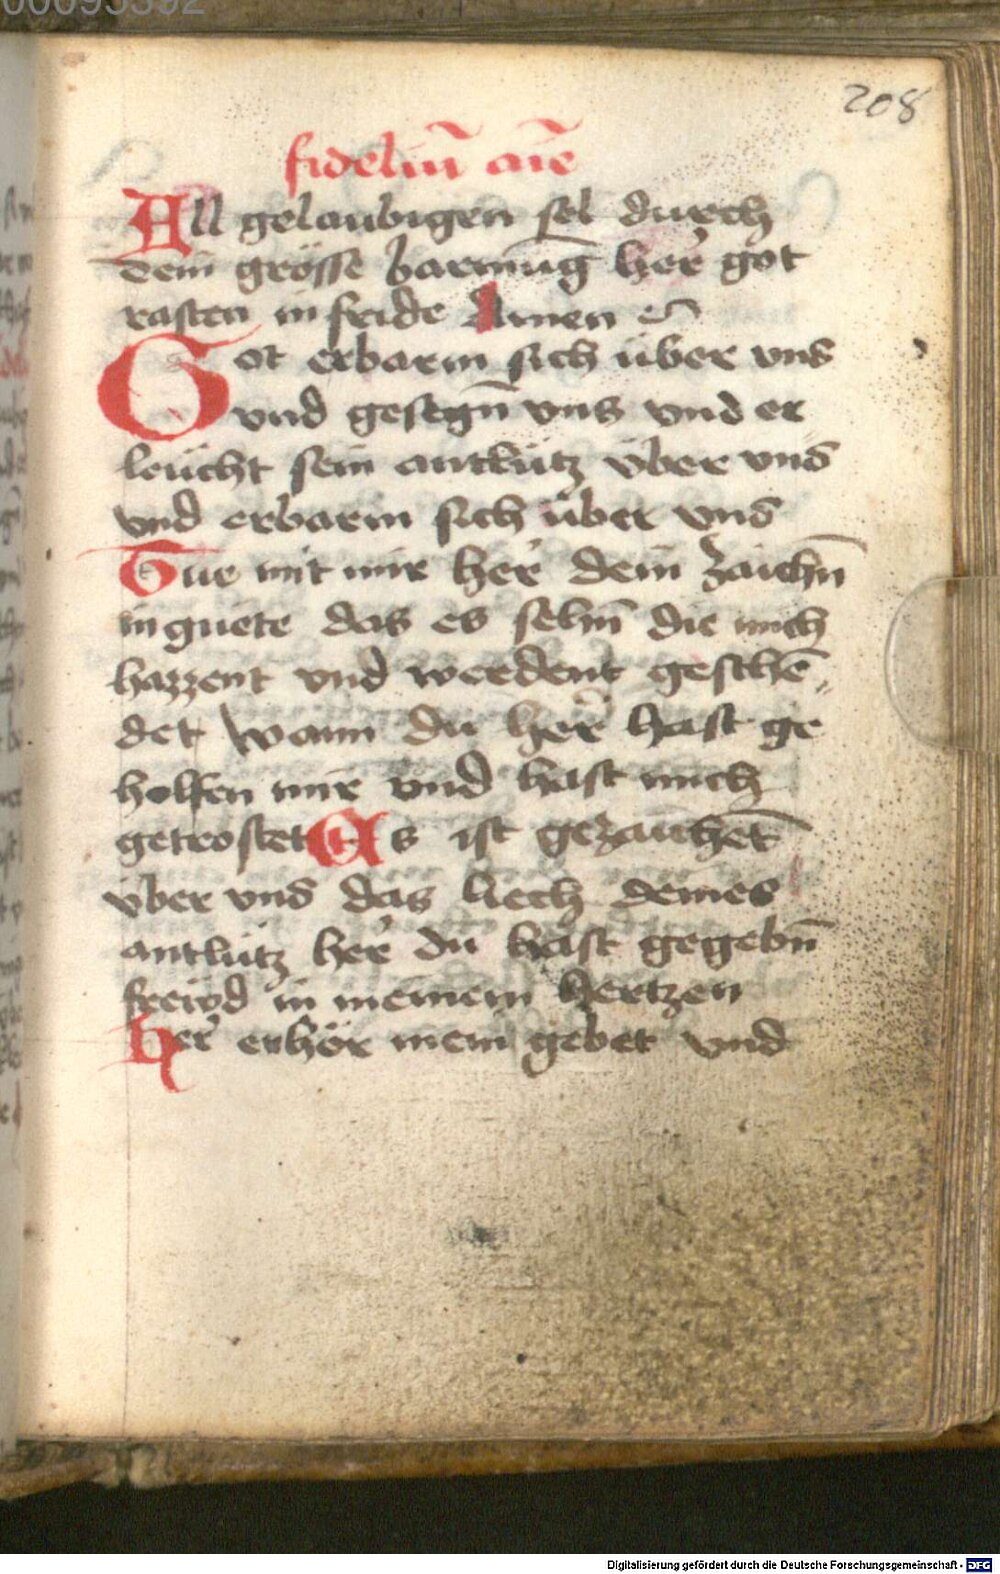 00095592
208
fideliū aīe
All gelaubigen sel durch
dein grösse barmūg her̓ got
rasten in fride Amen
Got erbarm sich über vns
vnd gesegn̄ vns vnd er
leücht sein antlütz über vns
vnd erbarm sich über vns
Tue mit mir her̓ dein zaichn̄
in guete das es sehn̄ die mich
hazzent vnd werdent geschē
det wann du her̓ hast ge
holfen mir vnd hast mich
getrostet Es ist gezaichet̄
über vns das liech deines
antlütz her̓ du hast gegebn̄
freiwd in meinem hertzen
Her̓ erhör mein gebet vnd
Digitalisierung gefördert durch die Deutsche Forschungsgemeinschaft - DFG